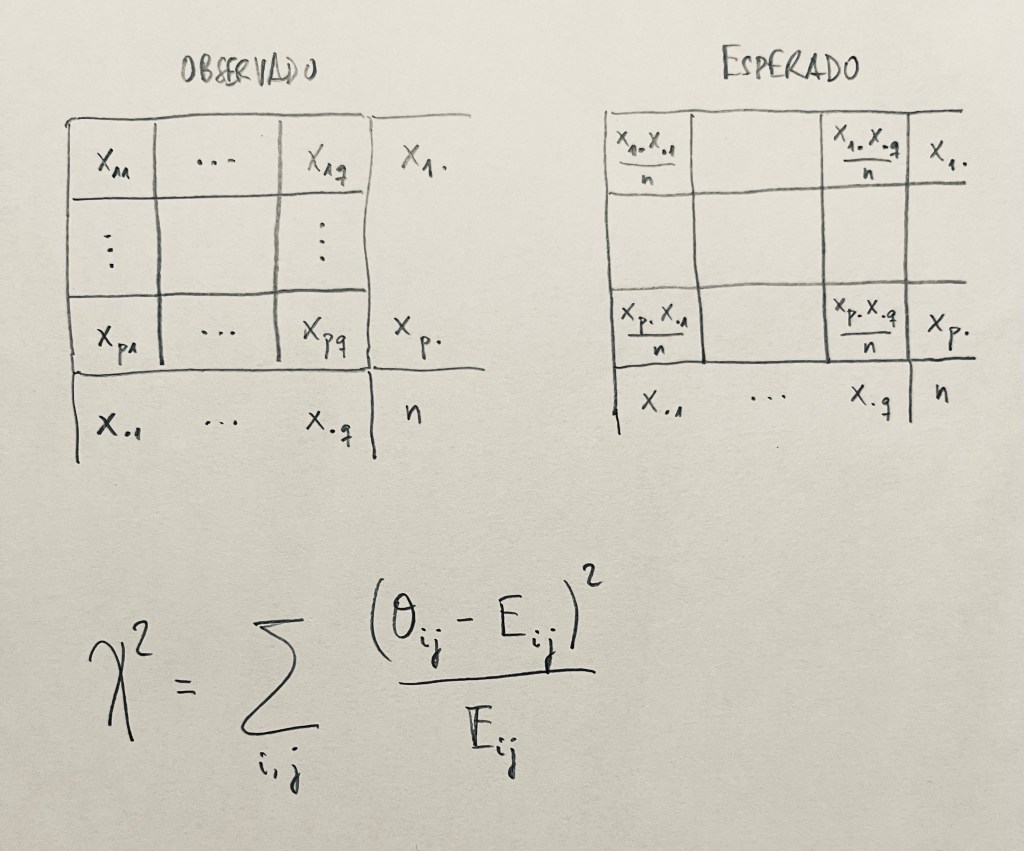 OBSERVADO
X₁₁ ... X₁q X₁.
⋮ ⋮
Xp₁ ... Xpq Xp.
X.₁ ... X.q n
ESPERADO
X₁.X.₁/n X₁.X.q/n X₁.
Xp.X.₁/n Xp.X.q/n Xp.
X.₁ ... X.q n
χ² = Σ i,j (Oij - Eij)²/Eij